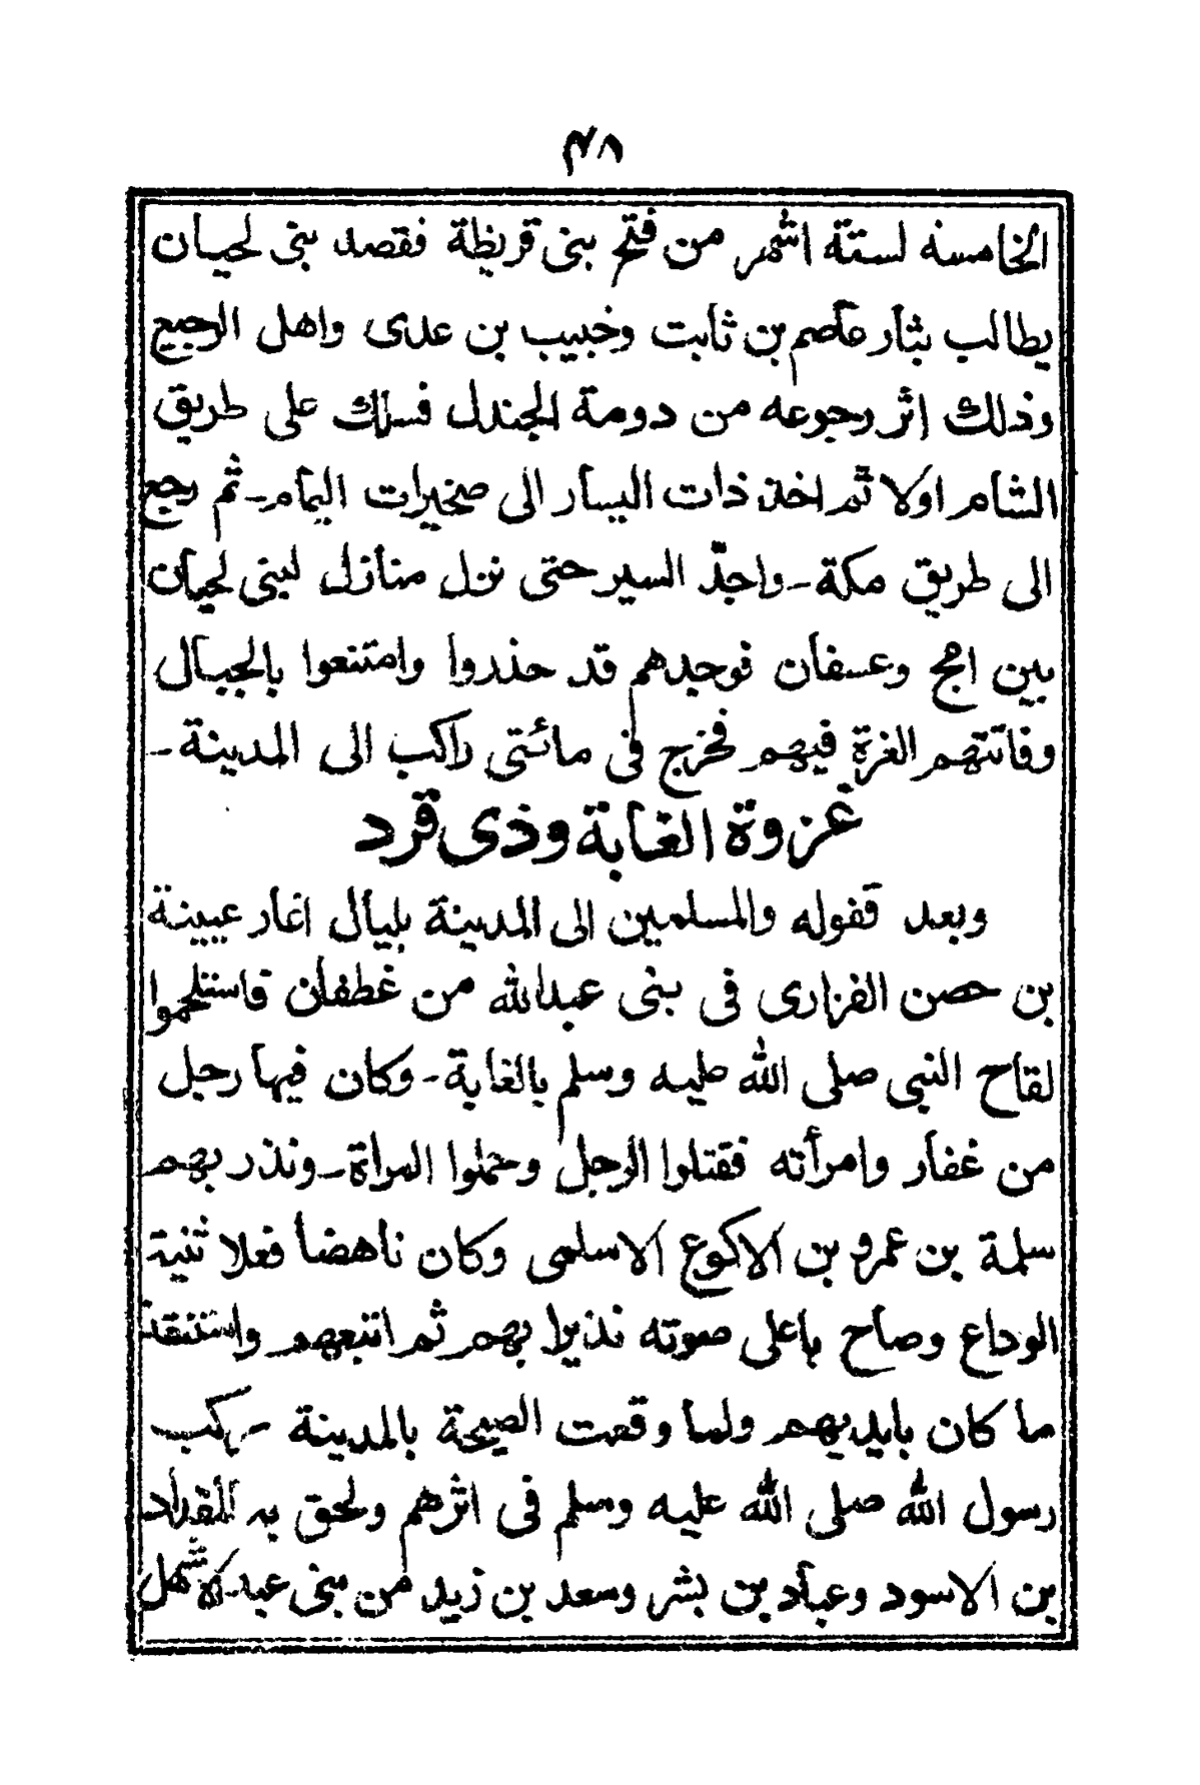 ۴۸
الخامسه لستة اشهر من فتح بنی قریظة فقصد بنی لحیان
یطالب بثار عاصم بن ثابت وخبیب بن عدی واهل الرجیع
وذلك اثر رجوعه من دومة الجندل فسلك علی طریق
الشام اولا ثم اخذ ذات الیسار الی صخیرات الیمام ـ ثم رجع
الی طریق مكة ـ واجدّ السیر حتی نزل منازل لبنی لحیان
بین امج وعسفان فوجدهم قد حذروا وامتنعوا بالجبال
وفاتتهم الغرة فیهم فخرج فی مائتی راكب الی المدینة ـ
غزوة الغابة وذی قرد
وبعد قفوله والمسلمین الی المدینة بلیال اغار عیینة
بن حصن الفزاری فی بنی عبدالله من غطفان فاستلحموا
لقاح النبی صلی الله علیه وسلم بالغابة ـ وكان فیها رجل
من غفار وامرأته فقتلوا الرجل وحملوا المراة ـ ونذر بهم
سلمة بن عمرو بن الاكوع الاسلمی وكان ناهضا فعلا ثنیة
الوداع وصاح باعلی صوته نذیرا بهم ثم اتبعهم واستنقذ
ما كان بایدیهم ولما وقعت الصیحة بالمدینة ركب
رسول الله صلی الله علیه وسلم فی اثرهم ولحق به المقداد
بن الاسود وعباد بن بشر وسعد بن زید من بنی عبد الاشهل